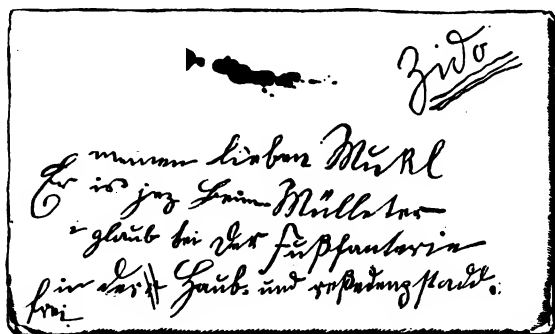 Zido
meinen lieben Mukl
Er is jez beim Mülleter
i glaub bei der Fußfanterie
in der Haub- und reßedenzstadt.
frei